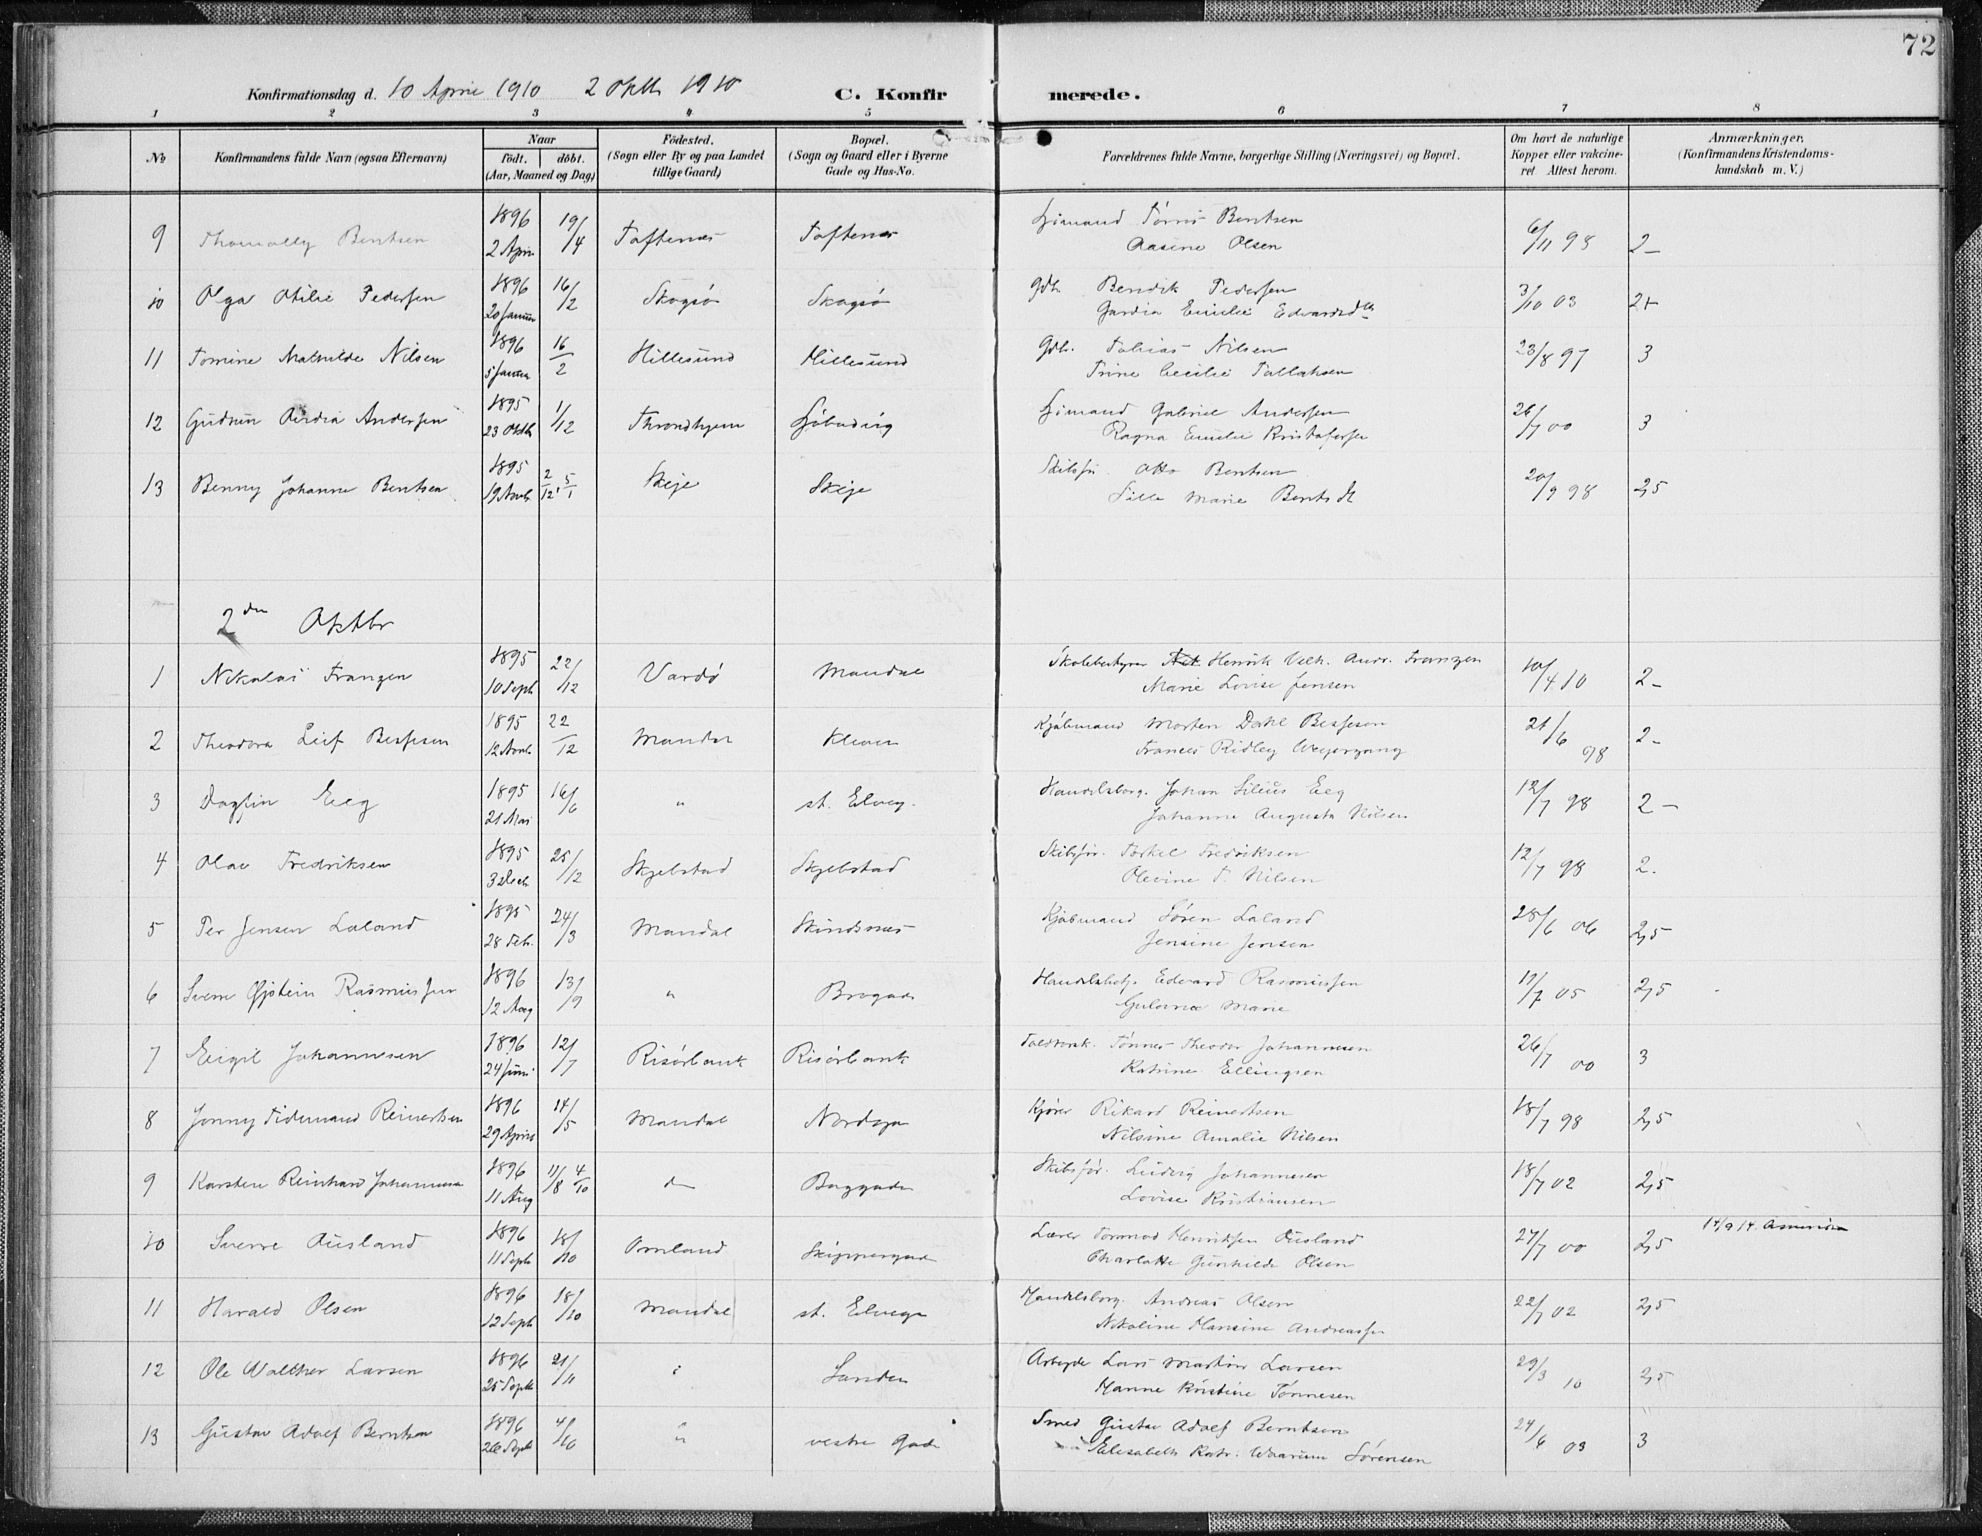 72
Konfirmationsdag d. 10 April 1910 2 Oktb 1910 C. Konfirmerede.
1 2 3 4 5 6 7 8
№ Konfirmandens fulde Navn (ogsaa Efternavn) Naar födt. döbt. (Aar, Maaned og Dag) Födested. (Sogn eller By og paa Landet tillige Gaard) Bopæl. (Sogn og Gaard eller i Byerne Gade og Hus-No. Forældrenes fulde Navne, borgerlige Stilling (Næringsvei) og Bopæl. Om havt de naturlige Kopper eller vakcineret. Attest herom. Anmærkninger. (Konfirmandens Kristendomskundskab m. V.)
9 Bentsen 1896 2 April 19/4 Toftenes Toftenes Tønnes Bentsen 6/11 98 2-
Aasine Olsen
10 Olga Otilie Pedersen 1896 20 Januar 16/2 Skogsø Skogsø Gdb. Bendik Pedersen 3/10 03 2+
Gardia Emilie Edvardsdtr
11 Tomine Mathilde Nilsen 1896 5 Januar 16/2 Hillesund Hillesund Gdb. Tobias Nilsen 23/8 97 3
Trine Cecilie Tallaksen
12 Gudrun Andersen 1895 23 Oktb 1/12 Throndhjem Gabriel Andersen 26/7 00 3
Ragna Emilie Kristofersen
13 Benny Johanne Bentsen 1895 19 Novb 2/12 5/1 Skeje Skeje Skibsfør. Otto Bentsen 20/9 98 2,5
Sille Marie Bentsdt
2den Oktbr
1 Nikolai Franzen 1895 10 Septb 22/12 Vardø Mandal Skolebestyrer Henrik Vilh. Andr. Franzen 10/4 10 2-
Marie Lovise Jensen
2 Theodora Leif Bessesen 1895 12 Novb. 22/12 Mandal Kleven Kjøbmand Morten Bessesen 21/6 98 2-
Frances Ridley Weyergang
3 Dagfin Eeg 1895 21 Mai 16/6 " st. Elveg. Handelsborg. Johan Silius Eeg 12/7 98 2-
Johanne Augusta Nilsen
4 Olav Fredriksen 1895 3 Decb 25/12 Skjebstad Skjebstad Skibsfør. Torkel Fredriksen 12/7 98 2.
Olevine T. Nilsen
5 Per Jensen Laland 1895 28 Feb. 24/3 Mandal Skindsnes Kjøbmand Søren Laland 28/6 06 2,5
Jensine Jensen
6 Sverre Øjstein Rasmussen 1896 12 Aug 13/9 " Brogade Edvard Rasmussen 17/7 05 2,5
Gulovna Marie
7 Eigil Johannesen 1896 24 Juni 12/7 Risørbank Risørbank Tønnes Theodor Johannesen 26/7 00 3
Katrine Ellingsen
8 Jonny Tidemand Reinertsen 1896 29 April 14/5 Mandal Nordgn Kjører Rikard Reinertsen 18/7 98 2,5
Nilsine Amalie Nilsen
9 Karsten Reinhard Johannesen 1896 11 Aug 11/8 4/10 do Baggade Skibsfør. Ludvig Johannesen 18/7 02 2,5
Lovise Kristiansen
10 Sverre Ausland 1896 11 Septb 18/10 Omland Skippergad Lærer Tormod Henriksen Ausland 27/7 00 2,5 14/9 14.
Charlotte Gunhilde Olsen
11 Harald Olsen 1896 12 Septb 18/10 Mandal st. Elvegn Handelsborg. Andreas Olsen 22/7 02 2,5
Nikoline Hansine Andreassen
12 Ole Walther Larsen 1896 25 Septb 21/11 " Sanden Arbejder Lars Martin Larsen 29/3 10 2,5
Hanne Kristine Tønnesen
13 Gustav Adolf Berntsen 1896 26 Septb 4/10 " vestre Gade Smed Gustav Adolf Berntsen 24/6 03 3
Elisabeth Katr. Waarum Sørensen